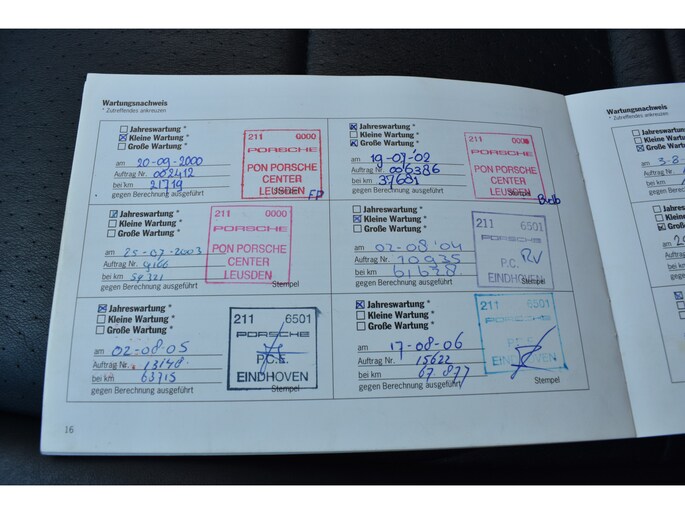 Wartungsnachweis
* Zutreffendes ankreuzen
Jahreswartung *
Kleine Wartung *
Große Wartung *
am 20-09-2000
Auftrag Nr. 002412
bei km 21719
gegen Berechnung ausgeführt
Stempel
211 0000
PORSCHE
PON PORSCHE
CENTER
LEUSDEN
FP
Jahreswartung *
Kleine Wartung *
Große Wartung *
am 19-07-'02
Auftrag Nr. 006386
bei km 37601
gegen Berechnung ausgeführt
Stempel
211 0000
PORSCHE
PON PORSCHE
CENTER
LEUSDEN
Jahreswartung *
Kleine Wartung *
Große Wartung *
am 25-07-2003
Auftrag Nr. 9166
bei km
gegen Berechnung ausgeführt
Stempel
211 0000
PORSCHE
PON PORSCHE
CENTER
LEUSDEN
Jahreswartung *
Kleine Wartung *
Große Wartung *
am 02-08'04
Auftrag Nr. 10935
bei km 61.678
gegen Berechnung ausgeführt
Stempel
211 6501
PORSCHE
P.C.
RV
EINDHOVEN
Jahreswartung *
Kleine Wartung *
Große Wartung *
am 02-08-05
Auftrag Nr. 13148
bei km 63715
gegen Berechnung ausgeführt
Stempel
211 6501
PORSCHE
P.C.E.
EINDHOVEN
Jahreswartung *
Kleine Wartung *
Große Wartung *
am 17-08-06
Auftrag Nr. 15622
bei km 67.877
gegen Berechnung ausgeführt
Stempel
211 6501
PORSCHE
P.C.E.
EINDHOVEN
16
Wartungsnachweis
* Zutreffendes ankreuzen
Jahreswartung
Kleine
Große Wartung
am 3-8-
Auftrag Nr.
bei km
gegen Berechnung
Jahres
Kleine
Große
am
Auftrag Nr.
bei km
gegen Berech
Jahres
Kleine
Große
am
Auftrag Nr.
bei km
gegen Berech